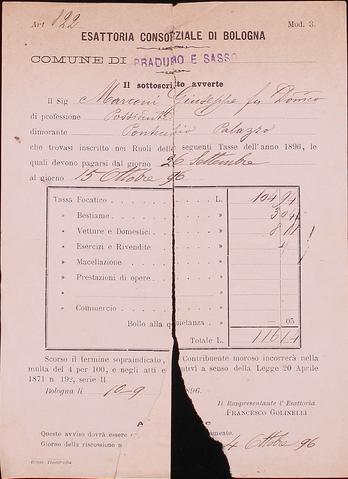 Art 122 Mod. 3.
ESATTORIA CONSORZIALE DI BOLOGNA
COMUNE DI PRADURO E SASSO
Il sottoscritto avverte
Il Sig Marconi Giuseppe fu Domco
di professione Possidente
dimorante Pontecchio Palazzo
che trovasi inscritto nei Ruoli delle seguenti Tasse dell'anno 1896, le
quali devono pagarsi dal giorno 26 Settembre
al giorno 15 Ottobre 96
Tassa Focatico L. 104 94
» Bestiame »
» Vetture e Domestici »
» Esercizi e Rivendite »
» Macellazione »
» Prestazioni di opere »
»
» Commercio »
Bollo alla quietanza » — 05
Totale L.
Scorso il termine sopraindicato, Contribuente moroso incorrerà nella
multa del 4 per 100, e negli atti e a senso della Legge 20 Aprile
1871 n. 192, serie II
Bologna li 10-9 896.
Il Rappresentante l'Esattoria
FRANCESCO GOLINELLI
Questo avviso dovrà essere
Giorno della riscossione 4 Ottobre 96